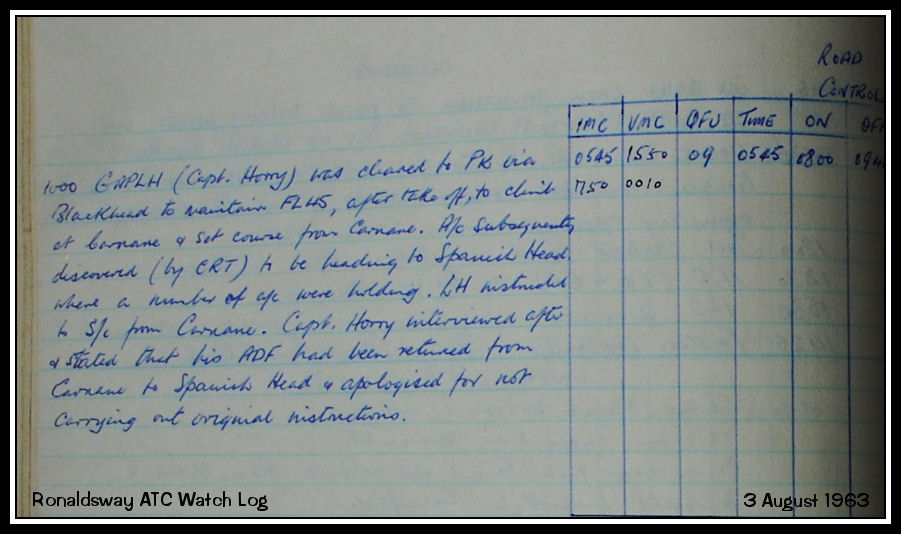 ROAD
CONTROL
IMC VMC QFU TIME ON OFF
0545 1550 09 0545 0800 094
1750 0010
1000 GAPLH (Capt. Horry) was cleared to PK via
Blackhead to maintain FL45, after take off, to climb
at Carnane & set course from Carnane. A/c subsequently
discovered (by CRT) to be heading to Spanish Head,
where a number of a/c were holding. LH instructed
to S/c from Carnane. Capt. Horry interviewed after
& stated that his ADF had been retuned from
Carnane to Spanish Head & apologised for not
carrying out original instructions.
Ronaldsway ATC Watch Log
3 August 1963